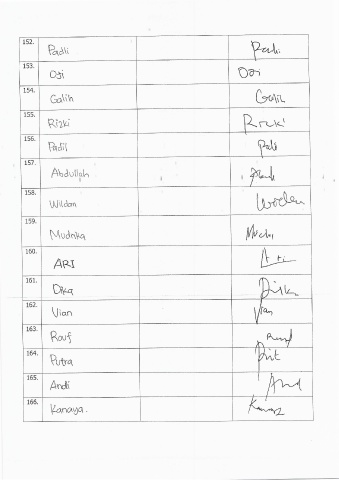 152. Padli Padli
153. Ogi Ogi
154. Galih Galih
155. Rizki Rizki
156. Padil Padil
157. Abdullah
158. Wildan Wildan
159. Mudrika
160. ARI
161. Dika Dika
162. Vian Vian
163. Rauf Rauf
164. Putra
165. Andi And
166. Kanaya.